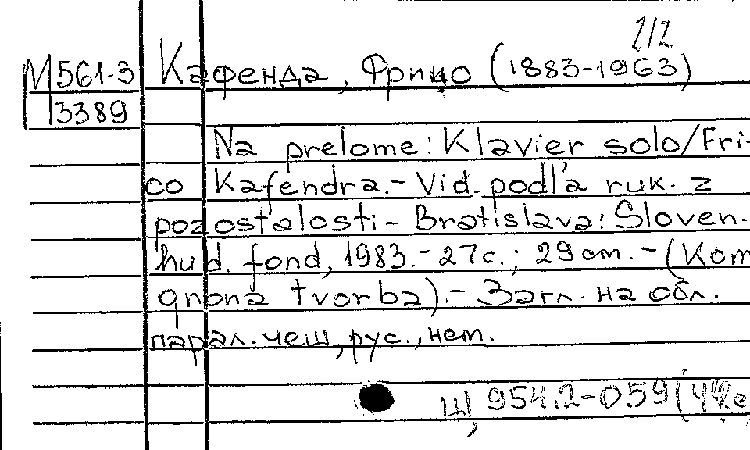 212
М561-3 Кафенда, Фрицо (1883-1963)
3389
Na prelome: Klavier solo/Fri-
co Kafendra.- Vid. podl'a ruk. z
pozostalosti- Bratislava: Sloven.
hud. fond, 1983.- 27с.; 29 cm. - (Kom
gnona tvorba).- Загл. на обл.
парал. чеш, рус., нем.
954.2-059(44